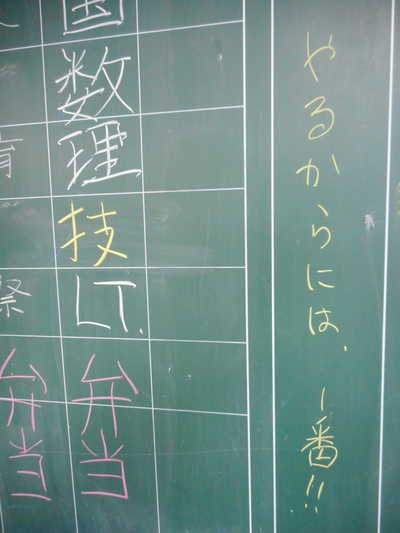 やるからには、1番!!
国
数
理
技
LT.
弁当
育
祭
弁当